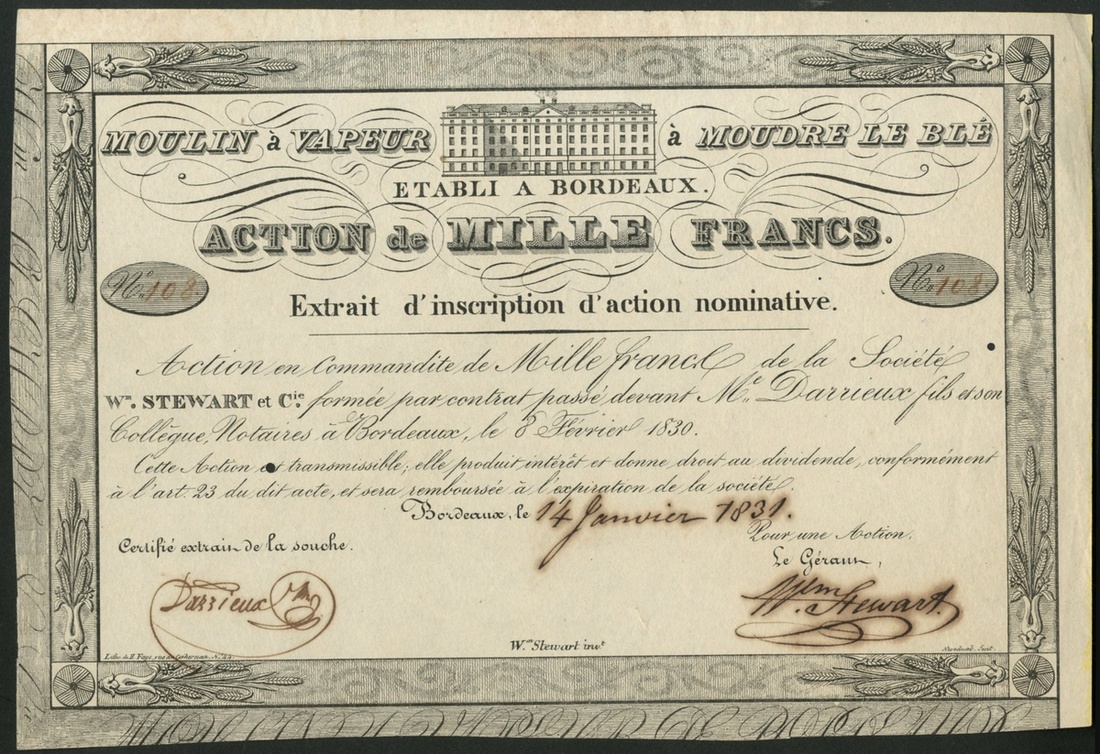 MOULIN à VAPEUR à MOUDRE LE BLÉ
ETABLI A BORDEAUX.
ACTION de MILLE FRANCS.
No. 108 No. 108
Extrait d'inscription d'action nominative.
Action en Commandite de Mille francs de la Société
Wm. STEWART et Cie. formée par contrat passé devant Me. Darrieux fils et son
Collègue, Notaires à Bordeaux, le 8 Février 1830.
Cette Action est transmissible; elle produit intérêt et donne droit au dividende, conformément
à l'art. 23 du dit acte, et sera remboursée à l'expiration de la société.
Bordeaux, le 14 Janvier 1831.
Pour une Action.
Certifié extrait de la souche.
Le Gérant,
Darrieux
Wm. Stewart
Wm. Stewart invt.
Litho de H. Faye, rue